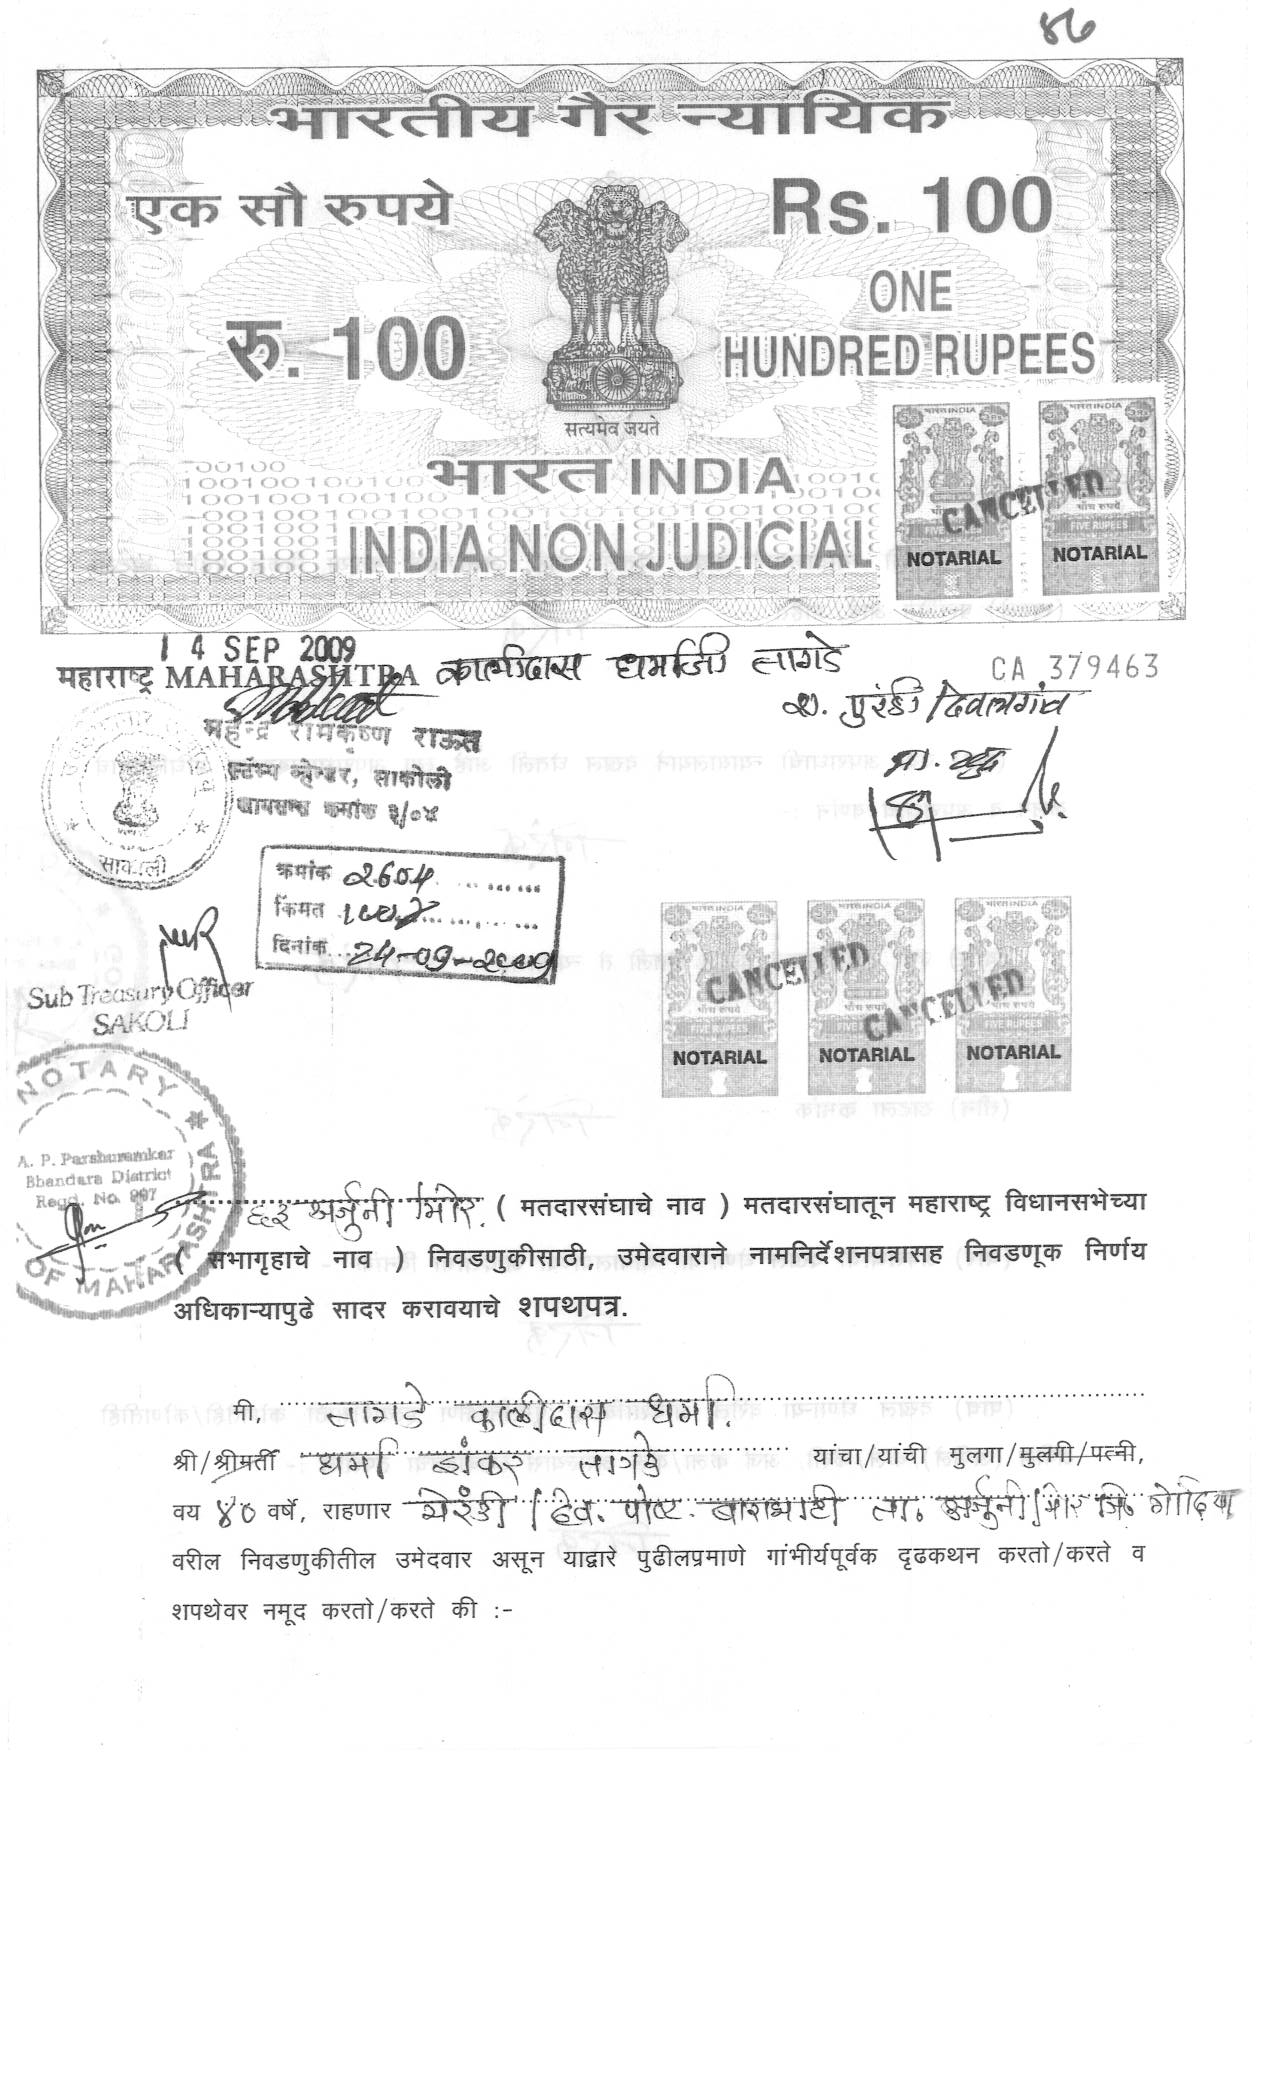 ४७
भारतीय गैर न्यायिक
एक सौ रुपये
Rs. 100
रु. 100
ONE
HUNDRED RUPEES
सत्यमेव जयते
भारत INDIA
INDIA NON JUDICIAL
भारत INDIA
पाँच रुपये
FIVE RUPEES
NOTARIAL
भारत INDIA
पाँच रुपये
FIVE RUPEES
NOTARIAL
CANCELLED
14 SEP 2009
महाराष्ट्र MAHARASHTRA
कालीदास धर्माजी लागडे
CA 379463
महेन्द्र रामकृष्ण राऊत
स्टॅम्प व्हेन्डर, साकोली
क्रमांक ३/०४
साकोली
क्रमांक 2604
किंमत 100
दिनांक 24-09-2009
Sub Treasury Officer
SAKOLI
भारत INDIA
पाँच रुपये
FIVE RUPEES
NOTARIAL
भारत INDIA
पाँच रुपये
FIVE RUPEES
NOTARIAL
भारत INDIA
FIVE RUPEES
NOTARIAL
CANCELLED
CANCELLED
NOTARY
A. P. Parshuramkar
Bhandara District
Regd. No. 907
OF MAHARASHTRA
६३ अर्जुनी मोर. ( मतदारसंघाचे नाव ) मतदारसंघातून महाराष्ट्र विधानसभेच्या
( सभागृहाचे नाव ) निवडणुकीसाठी, उमेदवाराने नामनिर्देशनपत्रासह निवडणूक निर्णय
अधिकाऱ्यापुढे सादर करावयाचे शपथपत्र.
मी, लागडे कालीदास धर्मा.
श्री/श्रीमती धर्मा झंकर लागडे यांचा/यांची मुलगा/मुलगी/पत्नी,
वय ४० वर्षे, राहणार येरंडी/देव. पोष्ट. बाराभाटी ता. अर्जुनी/मोर जि. गोंदिया
वरील निवडणुकीतील उमेदवार असून याद्वारे पुढीलप्रमाणे गांभीर्यपूर्वक दृढकथन करतो/करते व
शपथेवर नमूद करतो/करते की :-